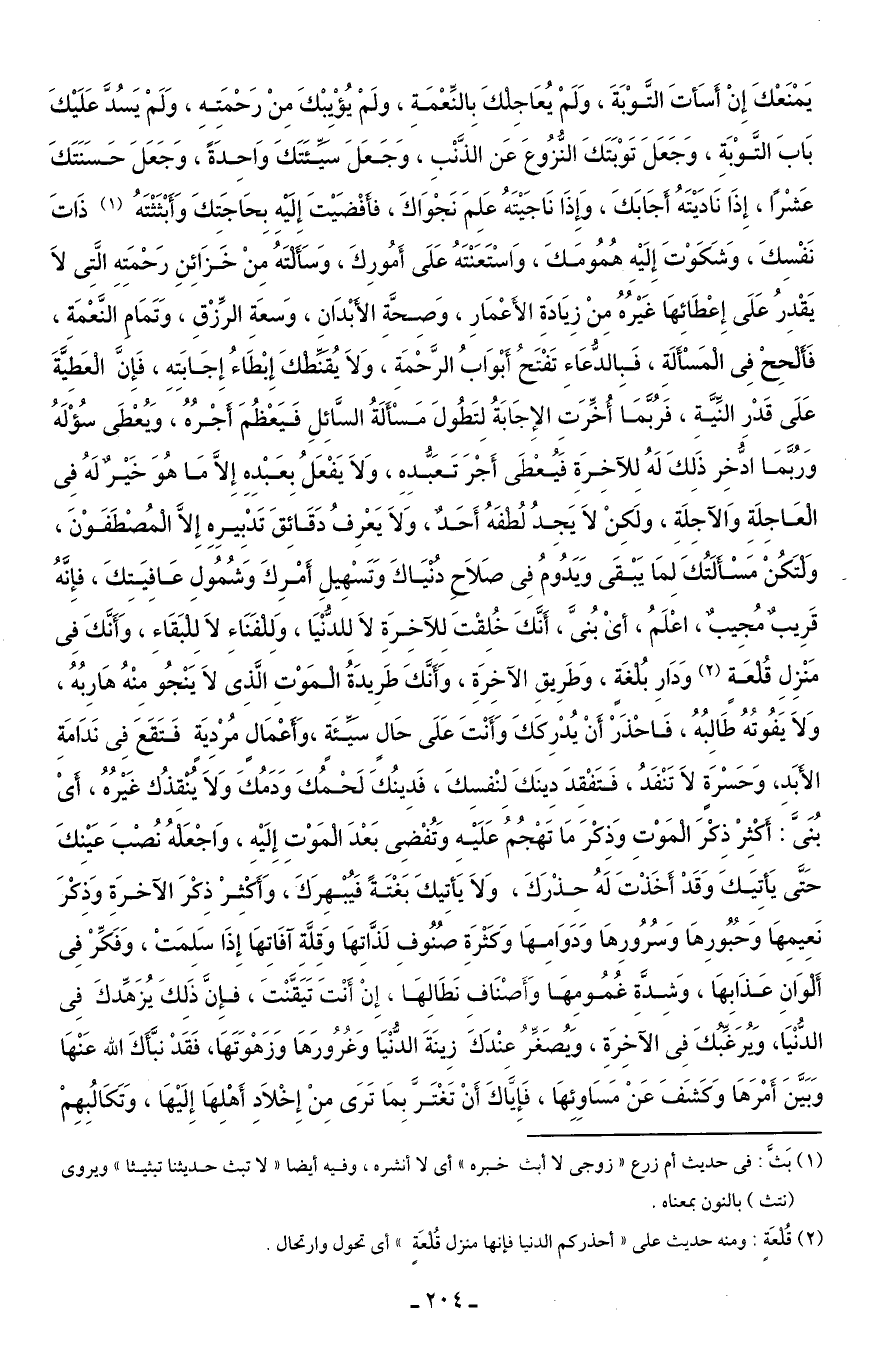 يَمْنَعْكَ إِنْ أَسَأتَ التَّوْبَةَ ، وَلَمْ يُعَاجِلْكَ بِالنِّعْمَةِ ، ولَمْ يُؤْيِبْكَ مِنْ رَحْمَتِهِ ، وَلَمْ يَسُدَّ عَلَيْكَ
بَابَ التَّوْبَةِ ، وَجَعَلَ تَوْبَتَكَ النُّزُوعَ عَنِ الذَّنْبِ ، وَجَعَلَ سَيِّئَتَكَ وَاحِدَةً ، وَجَعَلَ حَسَنَتَكَ
عَشْرًا ، إِذَا نَادَيْتَهُ أَجَابَكَ ، وَإِذَا نَاجَيْتَهُ عَلِمَ نَجْوَاكَ ، فَأَفْضَيْتَ إِلَيْهِ بِحَاجَتِكَ وَأَبْثَثْتَهُ (١) ذَاتَ
نَفْسِكَ ، وَشَكَوْتَ إِلَيْهِ هُمُومَكَ ، وَاسْتَعَنْتَهُ عَلَى أُمُورِكَ ، وَسَأَلْتَهُ مِنْ خَزَائِنِ رَحْمَتِهِ الَّتِى لاَ
يَقْدِرُ عَلَى إِعْطَائِهَا غَيْرُهُ مِنْ زِيَادَةِ الأَعْمَارِ ، وَصِحَّةِ الأَبْدَانِ ، وَسَعَةِ الرِّزْقِ ، وَتَمَامِ النِّعْمَةِ ،
فَأَلْحِحْ فِى المَسْأَلَةِ ، فَبِالدُّعَاءِ تَفْتَحُ أَبْوَابُ الرَّحْمَةِ ، وَلاَ يُقَنِّطْكَ إِبْطَاءُ إِجَابَتِهِ ، فَإِنَّ الْعَطِيَّةَ
عَلَى قَدْرِ النِّيَّةِ ، فَرُبَّمَا أُخِّرَتِ الإِجَابَةُ لِتَطُولَ مَسْأَلَةُ السَّائِلِ فَيَعْظُمَ أَجْرُهُ ، وَيُعْطَى سُؤْلَهُ
وَرُبَّمَا ادُّخِرَ ذَلِكَ لَهُ لِلآخِرَةِ فَيُعْطَى أَجْرَ تَعَبُّدِهِ ، وَلاَ يَفْعَلُ بِعَبْدِهِ إِلاَّ مَا هُوَ خَيْرٌ لَهُ فِى
العَاجِلَةِ وَالآجِلَةِ ، ولَكِنْ لاَ يَجِدُ لُطْفَهُ أَحَدٌ، وَلاَ يَعْرِفُ دَقَائِقَ تَدْبِيرِهِ إِلاَّ المُصْطَفَوْنَ ،
وَلْتَكُنْ مَسْأَلَتُكَ لِمَا يَبْقَى وَيَدُومُ فِى صَلاَحِ دُنْيَاكَ وَتَسْهِيلِ أَمْرِكَ وَشُمُولِ عَافِيَتِكَ ، فَإِنَّهُ
قَرِيبٌ مُجِيبٌ ، اعْلَمْ ، أىْ بُنىَّ ، أَنَّكَ خُلِقْتَ لِلآخِرَةِ لاَ لِلدُّنْيَا ، وَلِلْفَنَاءِ لاَ لِلْبَقَاءِ ، وَأَنَّكَ فِى
مَنْزِلِ قُلْعَةٍ (٢) وَدَارِ بُلْغَةٍ ، وَطَرِيقِ الآخِرَةِ ، وَأَنَّكَ طَرِيدَةُ الْمَوْتِ الَّذِى لاَ يَنْجُو مِنْهُ هَارِبُهُ ،
وَلاَ يَفُوتُهُ طَالِبُهُ ، فَاحْذَرْ أَنْ يُدْرِكَكَ وَأَنْتَ عَلَى حَالٍ سَيِّئَةٍ ،وَأَعْمَالٍ مُرْدِيَةٍ فَتَقَعَ فِى نَدَامَةِ
الأَبَدِ، وَحَسْرَةٍ لاَ تَنْفَدُ ، فَتَفْقِدَ دِينَكَ لِنَفْسِكَ ، فَدِينُكَ لَحْمُكَ وَدَمُكَ وَلاَ يُنْقِذُكَ غَيْرُهُ ، أىْ
بُنىَّ : أَكْثِرْ ذِكْرَ المَوْتِ وَذِكْرَ مَا تَهْجُمُ عَلَيْهِ وَتُفْضِى بَعْدَ الْمَوْتِ إِلَيْهِ ، وَاجْعَلْهُ نُصْبَ عَيْنِكَ
حَتَّى يَأْتِيَكَ وَقَدْ أَخَذْتَ لَهُ حِذْرَكَ ، وَلاَ يَأتِيكَ بَغْتَةً فَيُبْهِرَكَ ، وَأَكْثِرْ ذِكْرَ الآخِرَةِ وَذِكْرَ
نَعِيمِهَا وَحُبُورِهَا وَسُرُورِهَا وَدَوَامِهَا وَكَثْرَةِ صُنُوفِ لَذَّاتِهَا وَقِلَّةِ آفَاتِهَا إِذَا سَلِمَتْ ، وَفَكِّرْ فِى
أَلْوَانِ عَذَابِهَا ، وَشِدَّةِ غُمُومِهَا وَأَصْنَافِ نَطَالِهَا ، إِنْ أَنْتَ تَيَقَّنْتَ ، فَإِنَّ ذَلِكَ يُزَهِّدُكَ فِى
الدُّنْيَا، وَيُرَغِّبُكَ فِى الآخِرَةِ ، وَيُصَغِّرُ عِنْدَكَ زِينَةَ الدُّنْيَا وَغُرُورَهَا وَزَهْوَتَهَا، فَقَدْ نَبَّأَكَ الله عَنْهَا
وَبَيَّنَ أَمْرَهَا وَكَشَفَ عَنْ مَسَاوِئِهَا ، فَإِيَّاكَ أَنْ تَغْتَرَّ بِمَا تَرَى مِنْ إِخْلاَدِ أَهْلِهَا إِلَيْهَا ، وَتَكَالُبِهِمْ
(١) بَثَّ : فى حديث أم زرع « زوجى لا أبث خبره » أى لا أنشره ، وفيه أيضا « لا تبث حديثنا تبثيثا » ويروى
(نتث ) بالنون بمعناه .
(٢) قُلْعَةٍ : ومنه حديث على « أحذركم الدنيا فإنها منزل قُلْعَةٍ » أى تحول وارتحال .
ـ ٢٠٤ ـ